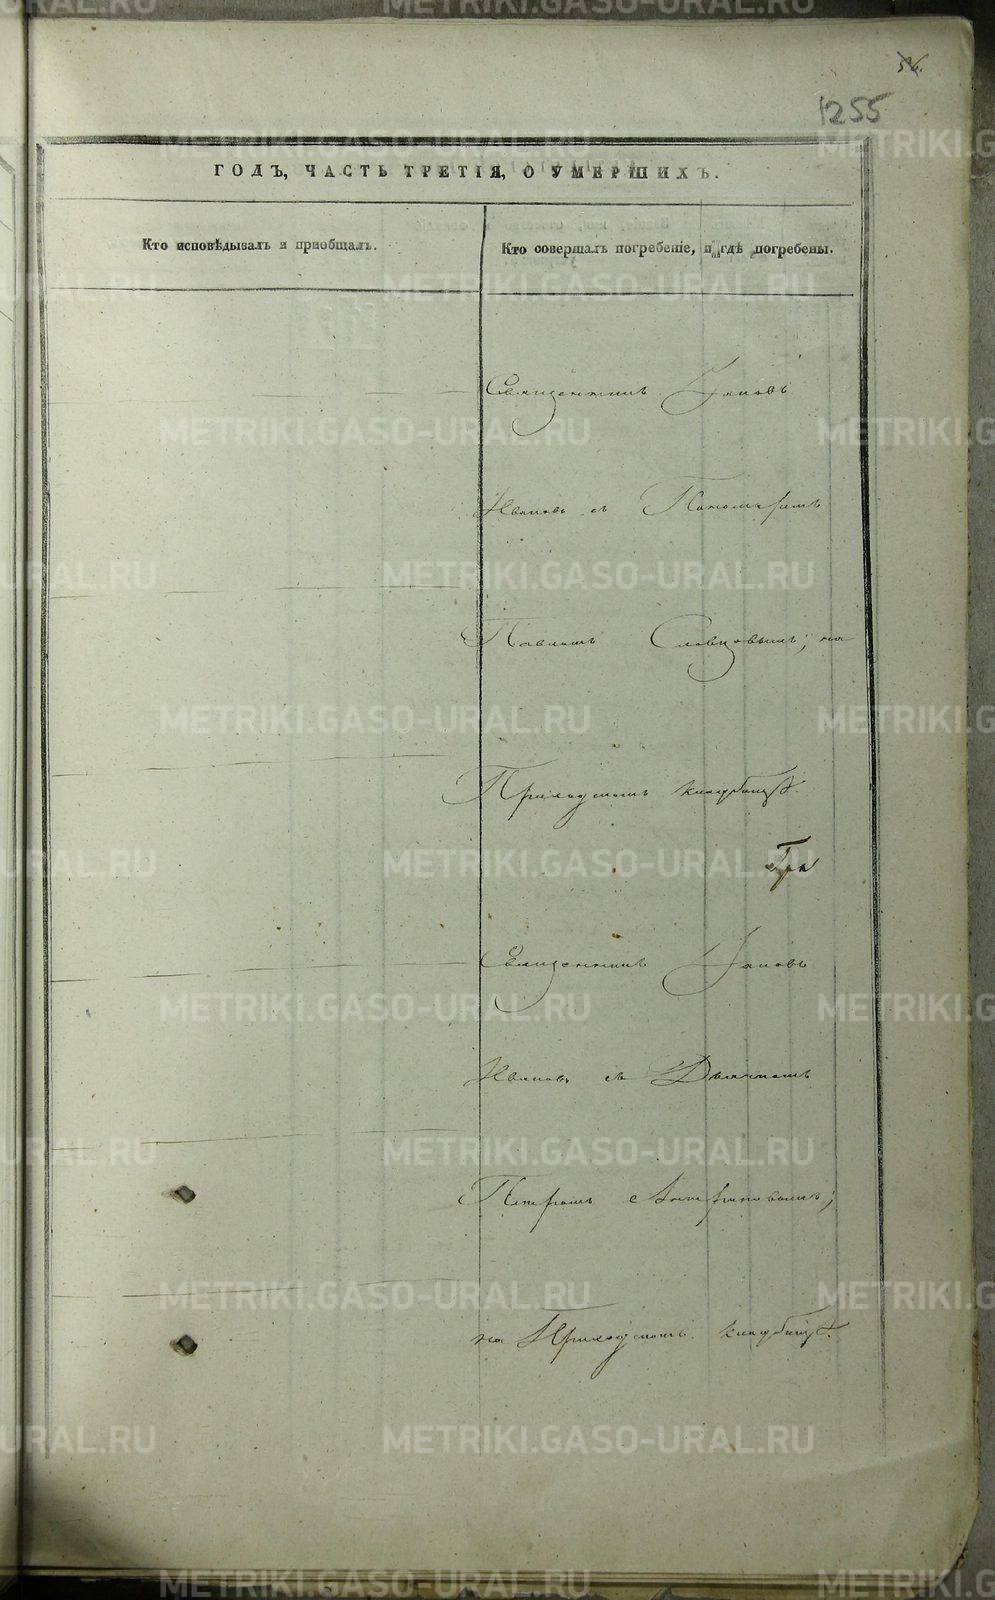 54.
1255
ГОДЪ, ЧАСТЬ ТРЕТІЯ, О УМЕРШИХЪ.
Кто исповѣдывалъ и пріобщалъ.
Кто совершалъ погребеніе, и гдѣ погребены.
Священникъ Іаковъ
Ивановъ съ Пономаремъ
Павломъ Словцовымъ; на
Приходскомъ кладбищѣ.
Гра
Священникъ Іаковъ
Ивановъ съ Дьячкомъ
Петромъ
на Приходскомъ кладбищѣ.
METRIKI.GASO-URAL.RU